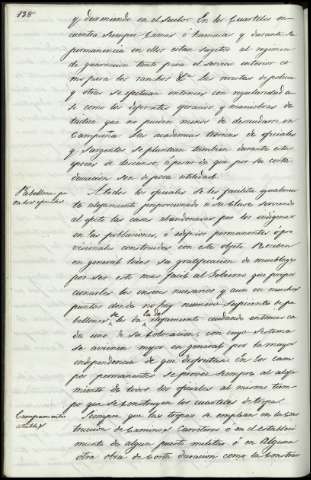 138
y durmiendo en el suelo. En los Cuarteles en-
cuentra siempre Camas ó Tarimas y durante su
permanencia en ellos estan sugetos al regimen
de guarnicion tanto para el servicio interior co-
mo para los ranchos &ª. Las revistas de policia
y otras se efectuan entonces con regularidad a-
si como los diferentes ejercicios y maniobras de
tactica que no pueden menos de descuidarse en
Campaña. Las academias teóricas de oficiales
y Sargentos se plantean tambien durante estas
epocas de descanso, á pesar de que por su corta
duracion son de poca utilidad.
Pabellones pa
ra los oficiales
A todos los oficiales se les facilita igualmen-
te alojamiento proporcionado á su clase sirviendo
al efecto las casas abandonadas por los indigenas
en las poblaciones, ó edificios permanentes ó pro-
visionales construidos con este objeto. Reciben
en general todos su gratificacion de mueblage
por ser esto mas facil al Gobierno que propor-
cionarles los enseres necesarios y aun en muchos
puntos donde no hay numero suficiente de pa-
bellones se les da alojamiento cuidando entonces ca-
da uno de su colocacion; con cuyo sistema
se avienen mejor en general por la mayor
independencia de que disfrutan. En los cam-
pos permanentes se provee siempre al aloja-
miento de todos los oficiales al mismo tiem-
po que se construyen los cuarteles de tropa.
Campamentos
Siempre que las tropas se emplean en la Cons-
truccion de Caminos Carreteros ó en el establecí-
miento de algun puesto militar ó en alguna
otra obra de corta duracion como la constru